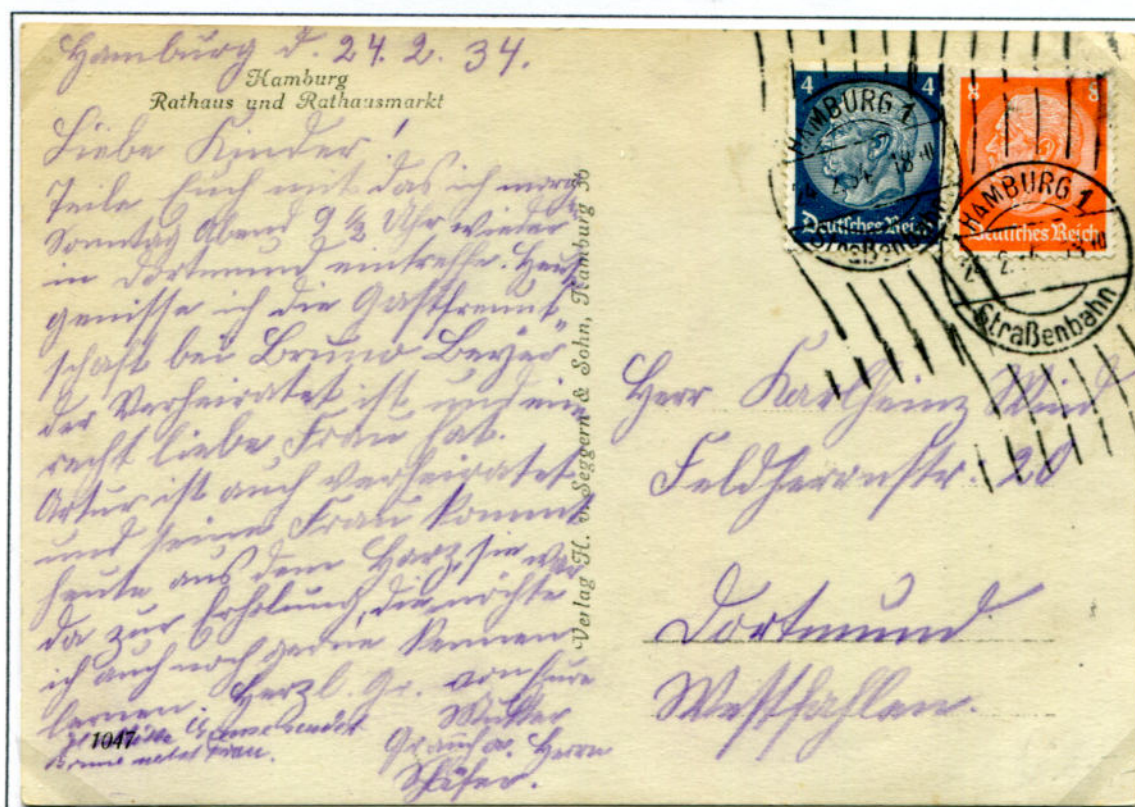 Hamburg d. 24. 2. 34.
Hamburg
Rathaus und Rathausmarkt
Liebe Kinder!
Teile Euch mit das ich morg.
Sonntag Abend 9 1/2 Uhr wieder
in Dortmund eintreffe. Heut
genisse ich die Gastfreunt
schaft bei Bruno Beyer
der Verheiratet ist und eine
recht liebe Frau hat.
Artur ist auch verheiratet
und seine Frau kommt
heute aus dem Harz, sie war
da zur Erholung, die möchte
ich auch noch gerne kennen
lernen. Herzl. Gr. von Eure
Mutter
Gr. auch a. Herrn
Schäfer.
Bruno nebst Frau.
1047
Verlag H. v. Seggern & Sohn, Hamburg 36
4 4
Deutsches Reich
8 8
Deutsches Reich
HAMBURG 1
Straßenbahn
HAMBURG 1
Straßenbahn
Herr Karlheinz Wind
Feldherrnstr. 20
Dortmund
Westfahlen.